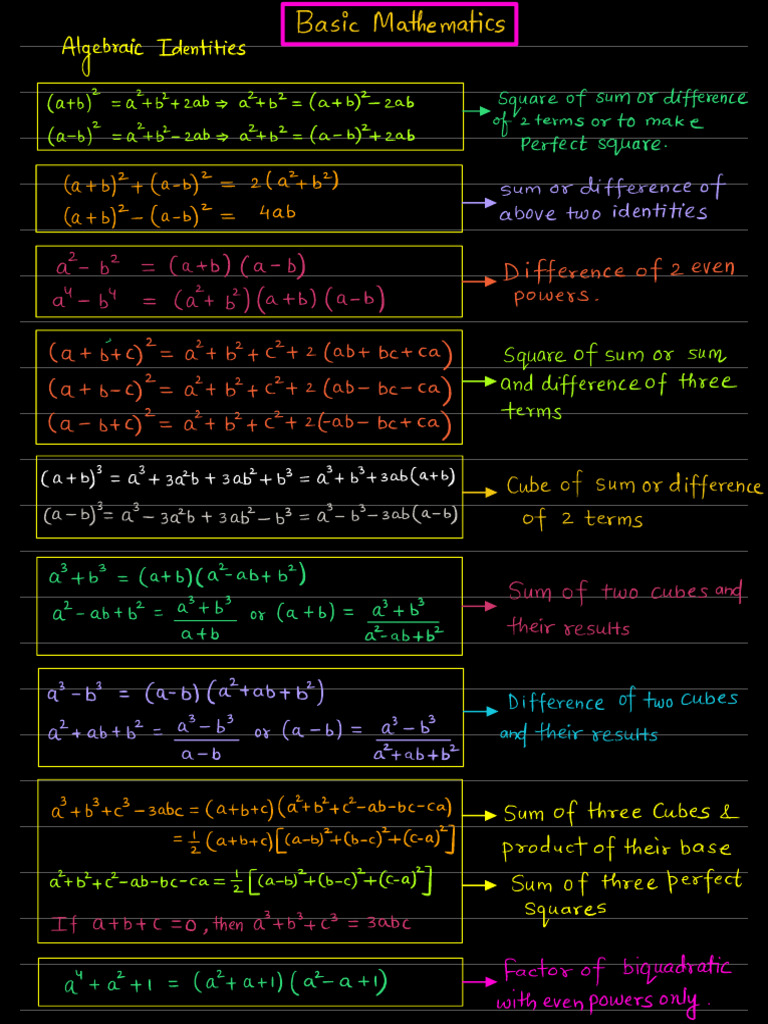 Basic Mathematics
Algebraic Identities
(a+b)² = a²+b²+2ab ⇒ a²+b² = (a+b)²-2ab
(a-b)² = a²+b²-2ab ⇒ a²+b² = (a-b)²+2ab
→ Square of sum or difference
of 2 terms or to make
Perfect square.
(a+b)²+(a-b)² = 2(a²+b²)
(a+b)²-(a-b)² = 4ab
→ sum or difference of
above two identities
a²-b² = (a+b)(a-b)
a⁴-b⁴ = (a²+b²)(a+b)(a-b)
→ Difference of 2 even
powers.
(a+b+c)² = a²+b²+c²+2(ab+bc+ca)
(a+b-c)² = a²+b²+c²+2(ab-bc-ca)
(a-b+c)² = a²+b²+c²+2(-ab-bc+ca)
→ Square of sum or sum
and difference of three
terms
(a+b)³ = a³+3a²b+3ab²+b³ = a³+b³+3ab(a+b)
(a-b)³ = a³-3a²b+3ab²-b³ = a³-b³-3ab(a-b)
→ Cube of sum or difference
of 2 terms
a³+b³ = (a+b)(a²-ab+b²)
a²-ab+b² = (a³+b³)/(a+b) or (a+b) = (a³+b³)/(a²-ab+b²)
→ Sum of two cubes and
their results
a³-b³ = (a-b)(a²+ab+b²)
a²+ab+b² = (a³-b³)/(a-b) or (a-b) = (a³-b³)/(a²+ab+b²)
→ Difference of two cubes
and their results
a³+b³+c³-3abc = (a+b+c)(a²+b²+c²-ab-bc-ca)
= ½(a+b+c)[(a-b)²+(b-c)²+(c-a)²]
→ Sum of three Cubes &
product of their base
a²+b²+c²-ab-bc-ca = ½[(a-b)²+(b-c)²+(c-a)²]
→ Sum of three perfect
Squares
If a+b+c=0, then a³+b³+c³ = 3abc
a⁴+a²+1 = (a²+a+1)(a²-a+1)
→ Factor of biquadratic
with even powers only.